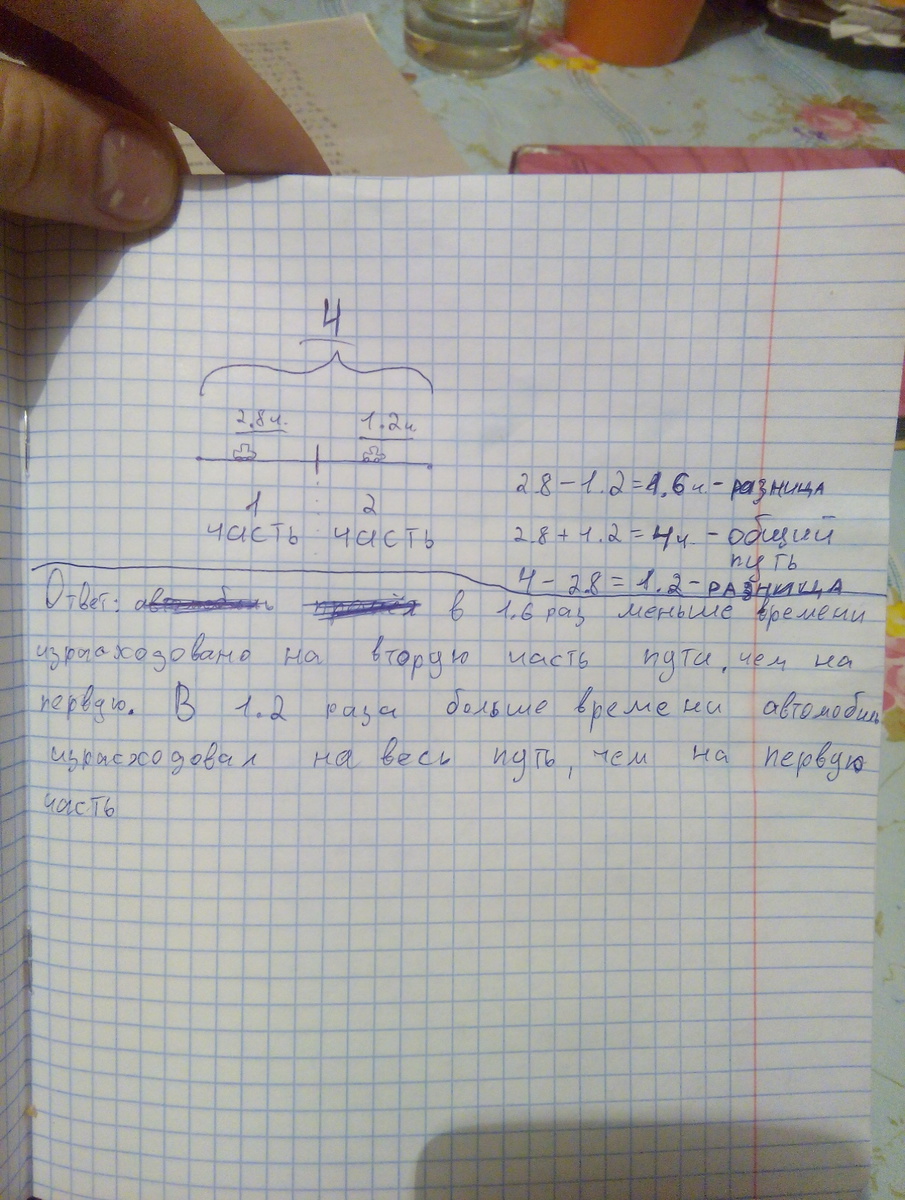 4
2.8ч. 1.2ч
1 2
часть часть
2.8 - 1.2 = 1,6 ч. - разница
2.8 + 1.2 = 4ч. - общий
путь
4 - 2.8 = 1.2 - разница
Ответ: в 1.6 раз меньше времени
израсходовано на вторую часть пути, чем на
первую. В 1.2 раза больше времени автомобиль
израсходовал на весь путь, чем на первую
часть